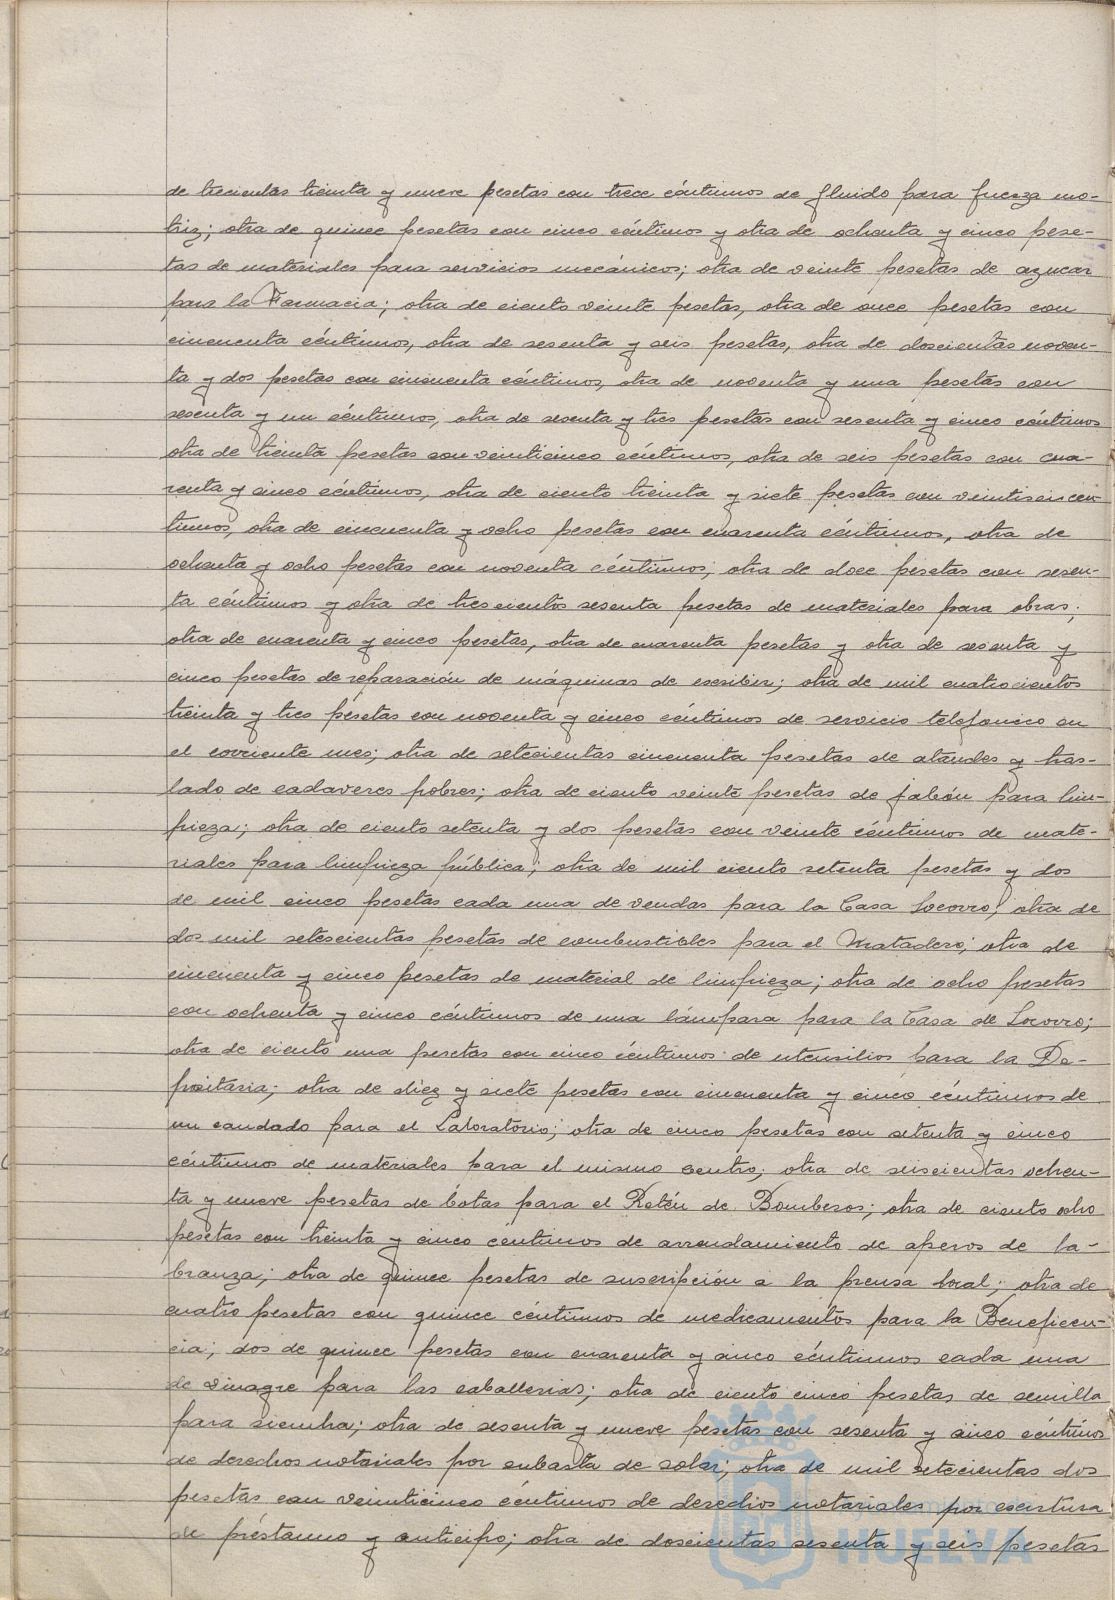 de trecientas treinta y nueve pesetas con trece céntimos de fluido para fuerza mo-
triz; otra de quince pesetas con cinco céntimos y otra de ochenta y cinco pese-
tas de materiales para servicios mecánicos; otra de veinte pesetas de azucar
para la Farmacia; otra de ciento veinte pesetas, otra de once pesetas con
cincuenta céntimos, otra de sesenta y seis pesetas, otra de doscientas noven-
ta y dos pesetas con cincuenta céntimos, otra de noventa y una pesetas con
sesenta y un céntimos, otra de sesenta y tres pesetas con sesenta y cinco céntimos
otra de treinta pesetas con veinticinco céntimos, otra de seis pesetas con cua-
renta y cinco céntimos, otra de ciento treinta y siete pesetas con veintiseis cen
timos, otra de cincuenta y ocho pesetas con cuarenta céntimos, otra de
ochenta y ocho pesetas con noventa céntimos; otra de doce pesetas con sesen-
ta céntimos y otra de trescientos sesenta pesetas de materiales para obras;
otra de cuarenta y cinco pesetas, otra de cuarenta pesetas y otra de sesenta y
cinco pesetas de reparación de máquinas de escribir; otra de mil cuatrocientos
treinta y tres pesetas con noventa y cinco céntimos de servicio telefonico en
el corriente mes; otra de setecientas cincuenta pesetas de ataudes y tras-
lado de cadaveres pobres; otra de ciento veinte pesetas de jabón para lim-
pieza; otra de ciento setenta y dos pesetas con veinte céntimos de mate-
riales para limpieza pública; otra de mil ciento setenta pesetas y dos
de mil cinco pesetas cada una de vendas para la Casa Socorro; otra de
dos mil setescientas pesetas de combustibles para el Matadero; otra de
cincuenta y cinco pesetas de material de limpieza; otra de ocho pesetas
con ochenta y cinco céntimos de una lámpara para la Casa de Socorro;
otra de ciento una pesetas con cinco céntimos de utensilios para la De-
positaria; otra de diez y siete pesetas con cincuenta y cinco céntimos de
un candado para el Laboratorio; otra de cinco pesetas con setenta y cinco
céntimos de materiales para el mismo centro; otra de seiscientas ochen-
ta y nueve pesetas de botas para el Retén de Bomberos; otra de ciento ocho
pesetas con treinta y cinco céntimos de arrendamiento de aperos de la-
branza; otra de quince pesetas de suscripción a la prensa local; otra de
cuatro pesetas con quince céntimos de medicamentos para la Beneficen-
cia; dos de quince pesetas con cuarenta y cinco céntimos cada una
de vinagre para las caballerias; otra de ciento cinco pesetas de semilla
para siembra; otra de sesenta y nueve pesetas con sesenta y cinco céntimos
de derechos notariales por subasta de solar; otra de mil setecientas dos
pesetas con veinticinco céntimos de derechos notariales por escritura
de préstamo y anticipo; otra de doscientas sesenta y seis pesetas
HUELVA